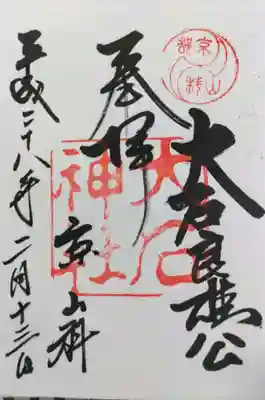 京都
山科
大石良雄公
奉拝
京山科
大石
神社
平成二十八年二月十三日